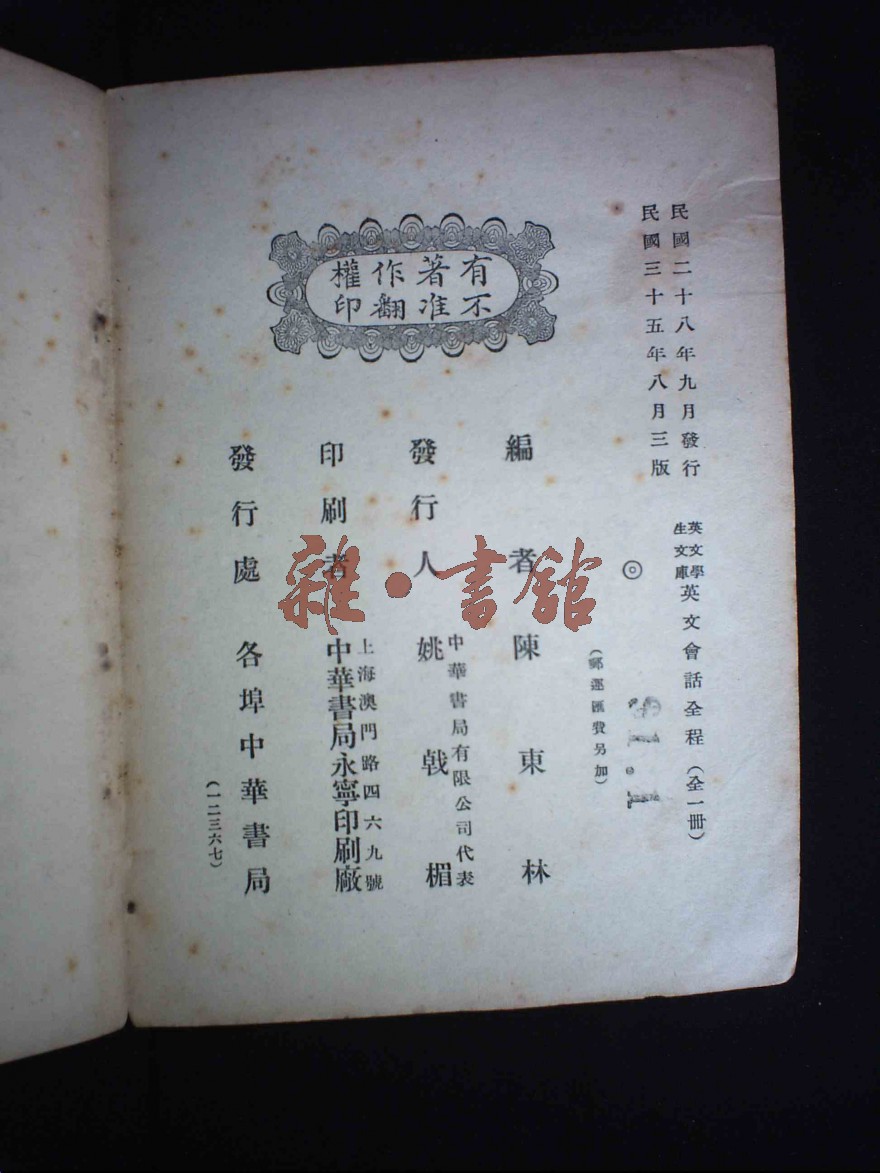 民國二十八年九月發行
民國三十五年八月三版
英文學生文庫
英文會話全程(全一冊)
◎
(郵運匯費另加)
有著作權
不准翻印
編者 陳東林
發行人 姚戟楣
中華書局有限公司代表
印刷者 中華書局永寧印刷廠
上海澳門路四六九號
發行處 各埠中華書局
(一二三六七)
雜·書館